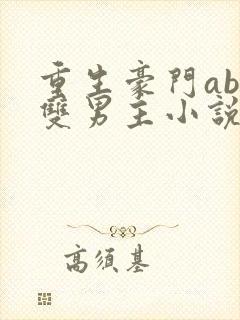 重生豪門ab
雙男主小說
高須基